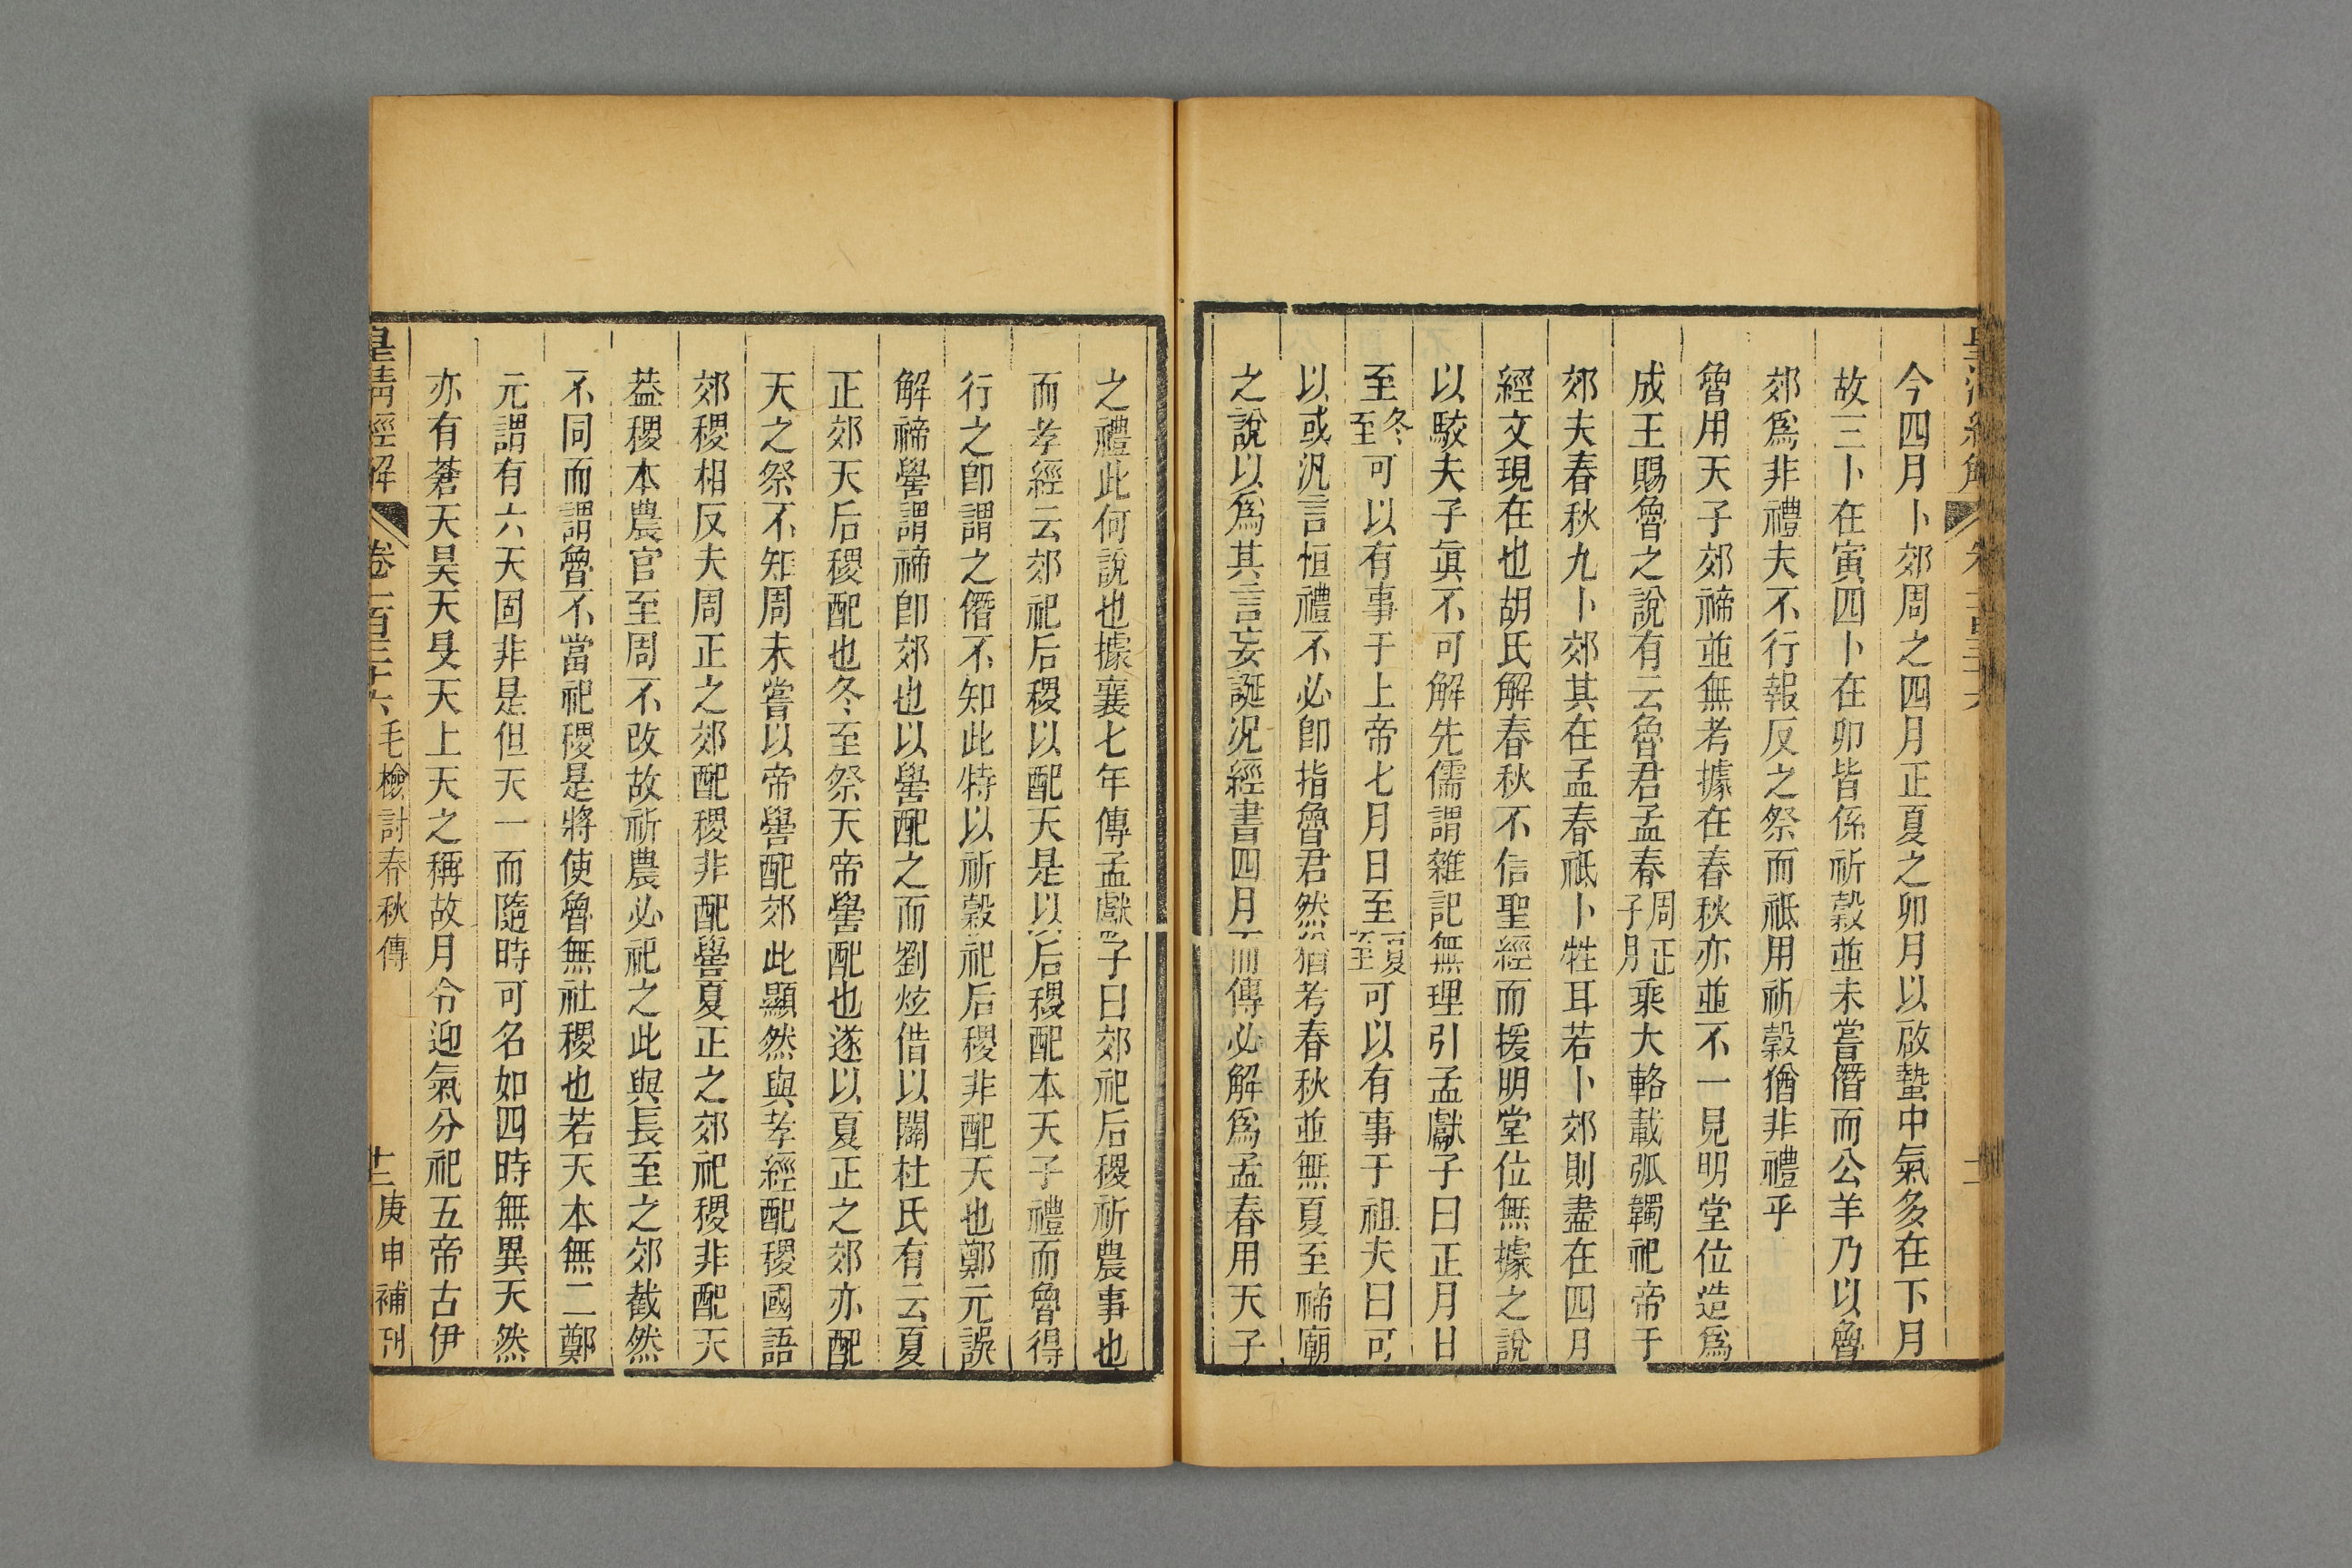 今四月卜郊周之四月正夏之卯月以啟蟄中氣多在下月
故三卜在寅四卜在卯皆係祈穀並未嘗僭而公羊乃以魯
郊爲非禮夫不行報反之祭而祗用祈穀猶非禮乎
魯用天子郊禘並無考據在春秋亦並不一見明堂位造爲
成王賜魯之說有云魯君孟春周正子月乘大輅載弧韣祀帝于
郊夫春秋九卜郊其在孟春祗卜牲耳若卜郊則盡在四月
經文現在也胡氏解春秋不信聖經而援明堂位無據之說
以駮夫子眞不可解先儒謂雜記無理引孟獻子曰正月日
至冬至可以有事于上帝七月日至夏至可以有事于祖夫曰可
以或汎言恒禮不必卽指魯君然猶考春秋並無夏至禘廟
之說以爲其言妄誕況經書四月而傳必解爲孟春用天子
之禮此何說也據襄七年傳孟獻子曰郊祀后稷祈農事也
而孝經云郊祀后稷以配天是以后稷配本天子禮而魯得
行之卽謂之僭不知此特以祈穀祀后稷非配天也鄭元誤
解禘嚳謂禘卽郊也以嚳配之而劉炫借以闢杜氏有云夏
正郊天后稷配也冬至祭天帝嚳配也遂以夏正之郊亦配
天之祭不知周未嘗以帝嚳配郊此顯然與孝經配稷國語
郊稷相反夫周正之郊配稷非配嚳夏正之郊祀稷非配天
葢稷本農官至周不改故祈農必祀之此與長至之郊截然
不同而謂魯不當祀稷是將使魯無社稷也若天本無二鄭
元謂有六天固非是但天一而隨時可名如四時無異天然
亦有蒼天昊天旻天上天之稱故月令迎氣分祀五帝古伊
皇清經解 卷一百二十六 毛檢討春秋傳 十二 庚申補刊